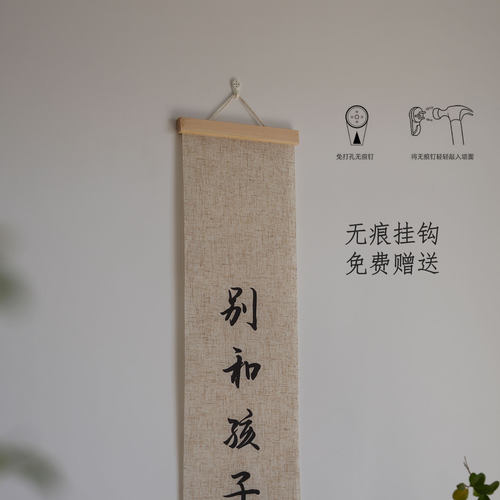 免打孔无痕钉
将无痕钉轻轻敲入墙面
无痕挂钩
免费赠送
别和孩子